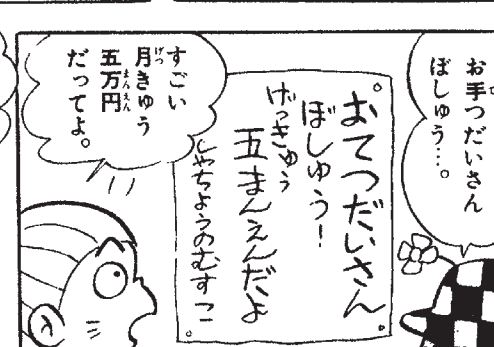 お手つだいさん
ぼしゅう…。
おてつだいさん
ぼしゅう!
げっきゅう
五まんえんだよ
しゃちょうのむすこ
すごい
月きゅう
五万円
だってよ。